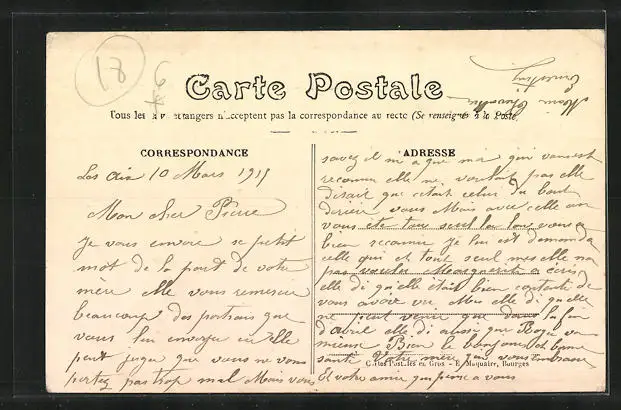 18
Carte Postale
Tous les étrangers n'acceptent pas la correspondance au recto (Se renseigner à la Poste
CORRESPONDANCE
Les Aix 10 Mars 1915
Mon cher Pierre
je vous envoie se petit
mot de la part de votre
mère elle vous remercie
beaucoup des portraits que
vous lui envoyer elle
peut juger que vous ne vous
portez pas trop mal Mais vous
ADRESSE
savez il m a que ma qui vous est
reconnu elle ne voulait pas elle
disait que cétait celui du bout
derier vous Mais avec celle an
vous été tous seul la lou vous a
bien reconnu je lui est demandé
celle qui et tout seul mes elle na
pas voulu Marguerite a écris
elle di qu'elle était bien contente de
vous avoir vu Mes elle di quelle
ne peut venir que dans la fin
d'avril elle di aussi que Roger va
mieux Bien le bonjour et bonne
santé Votre mère qui vous embrasse
C. tes Postales en Gros - E. Maquaire, Bourges
Et votre amie qui pense a vous